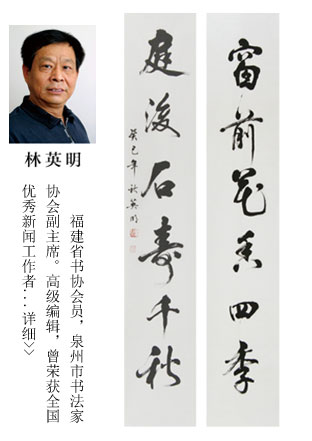 林英明
福建省书协会员，泉州市书法家
协会副主席。高级编辑，曾荣获全国
优秀新闻工作者...详细>>
窗前花香四季
庭後石壽千秋
癸巳年秋英明